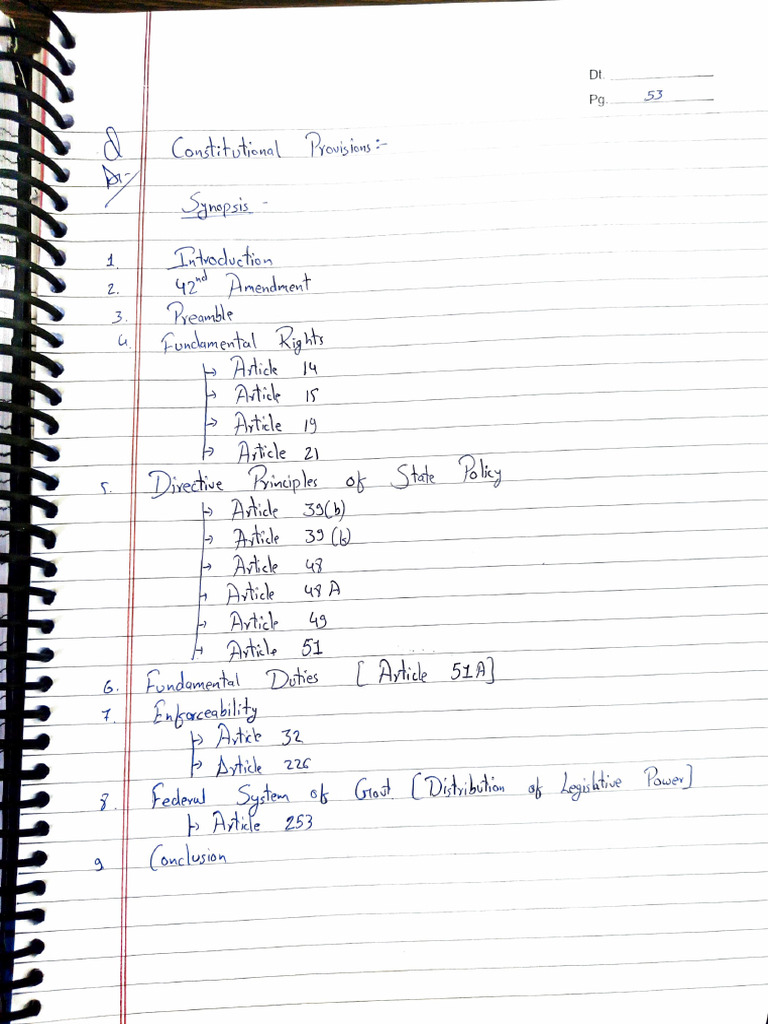 Dt.
Pg. 53
Q Constitutional Provisions:-
A:-
Synopsis -
1. Introduction
2. 42nd Amendment
3. Preamble
4. Fundamental Rights
↳ Article 14
↳ Article 15
↳ Article 19
↳ Article 21
5. Directive Principles of State Policy
↳ Article 39(b)
↳ Article 39
↳ Article 48
↳ Article 48A
↳ Article 49
↳ Article 51
6. Fundamental Duties [Article 51A]
7. Enforceability
↳ Article 32
↳ Article 226
8. Federal System of Govt. [Distribution of Legislative Power]
↳ Article 253
9 Conclusion